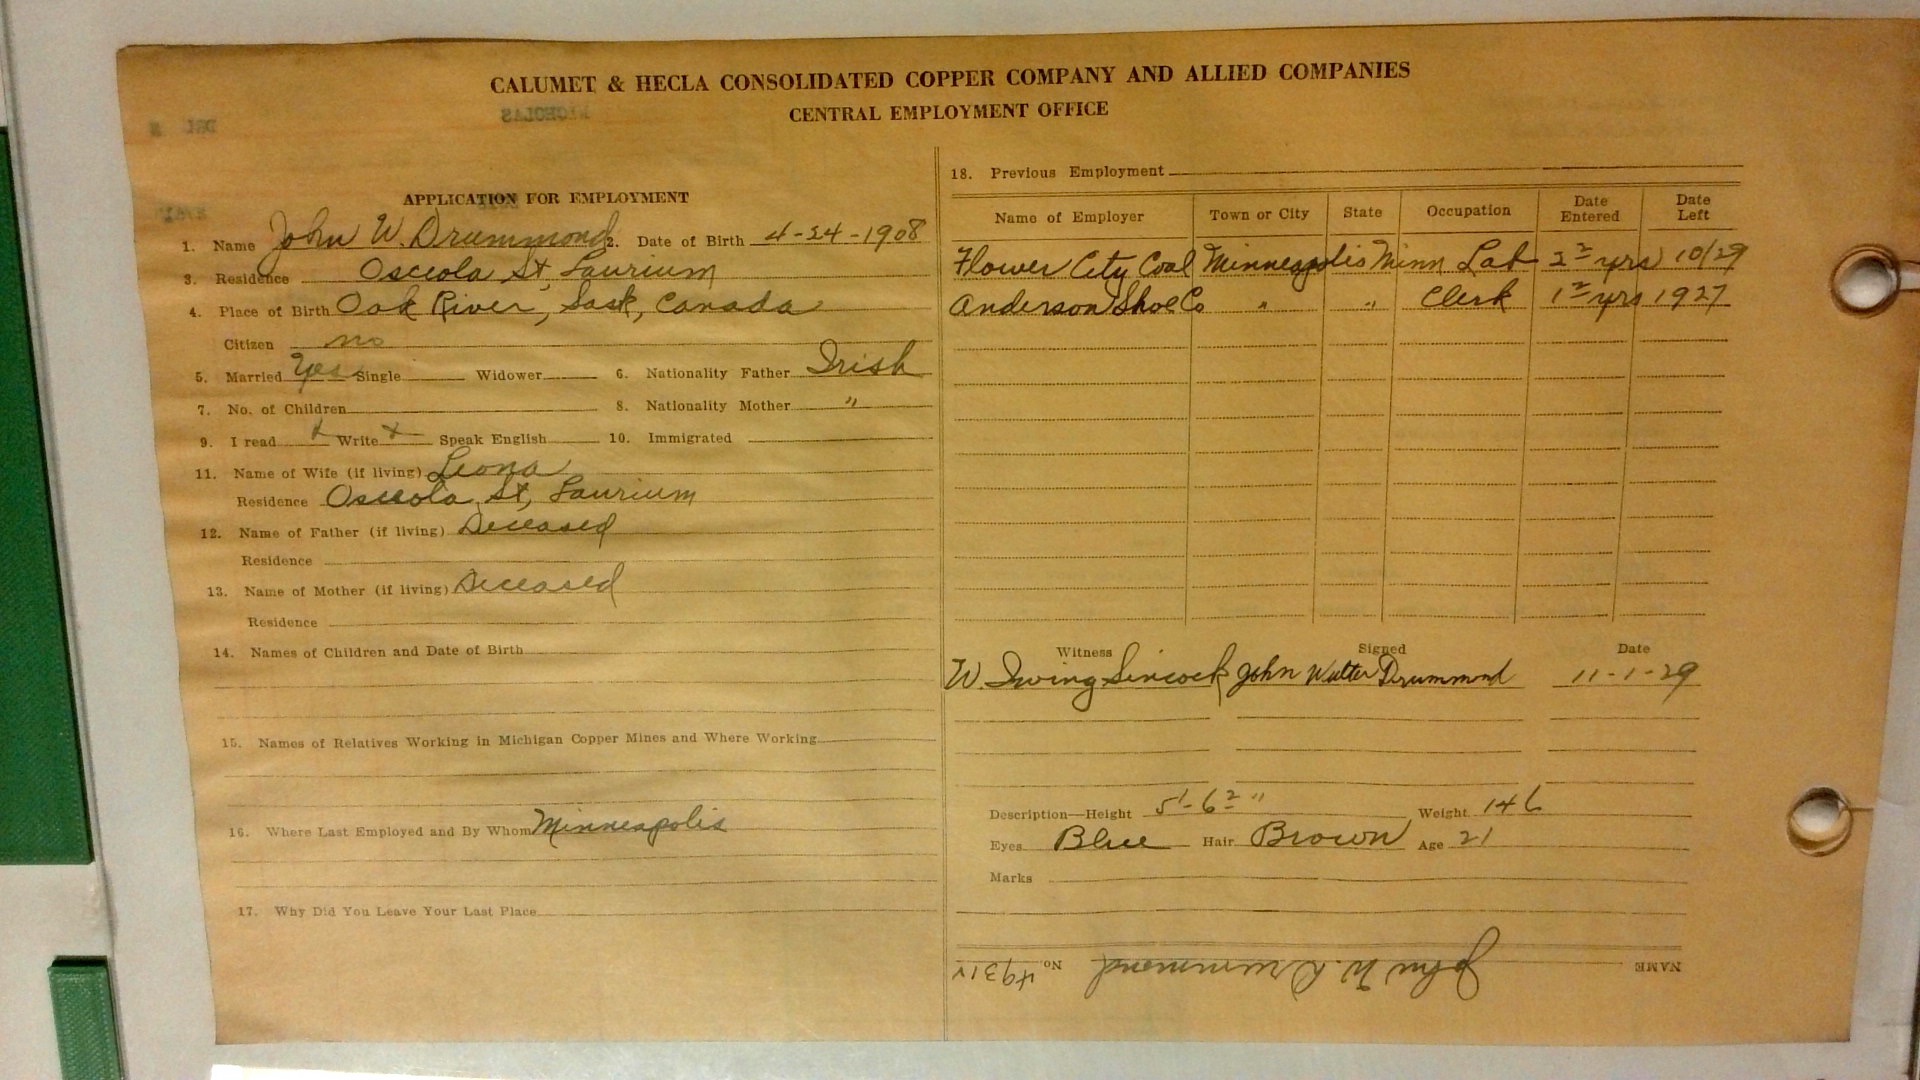 CALUMET & HECLA CONSOLIDATED COPPER COMPANY AND ALLIED COMPANIES
CENTRAL EMPLOYMENT OFFICE
NICHOLAS
APPLICATION FOR EMPLOYMENT
1. Name John W. Drummond 2. Date of Birth 4-24-1908
3. Residence Osceola St, Laurium
4. Place of Birth Oak River, Sask, Canada
Citizen no
5. Married Yes Single Widower 6. Nationality Father Irish
7. No. of Children 8. Nationality Mother "
9. I read x Write x Speak English 10. Immigrated
11. Name of Wife (if living) Leona
Residence Osceola St, Laurium
12. Name of Father (if living) Deceased
Residence
13. Name of Mother (if living) Deceased
Residence
14. Names of Children and Date of Birth
15. Names of Relatives Working in Michigan Copper Mines and Where Working
16. Where Last Employed and By Whom Minneapolis
17. Why Did You Leave Your Last Place
18. Previous Employment
Name of Employer Town or City State Occupation Date Entered Date Left
Flower City Coal Minneapolis Minn Lab yrs 10/29
Anderson Shoe Co " " Clerk yrs 1927
Witness Signed Date
W. Irving Sincock John Walter Drummond 11-1-29
Description—Height 5'-6 2 " Weight 146
Eyes Blue Hair Brown Age 21
Marks
NAME John W. Drummond No.